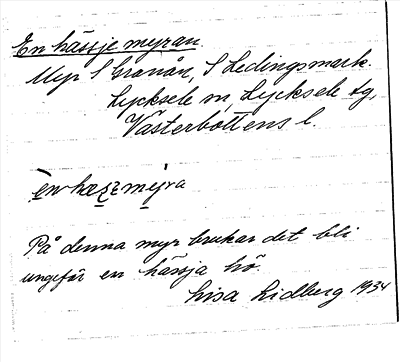 En hässje myran
Myr S Granån, S Ledingsmark.
Lycksele sn, Lycksele tg,
Västerbottens l.
På denna myr brukar det bli
ungefär en hässja hö.
Lisa Lidberg 1934